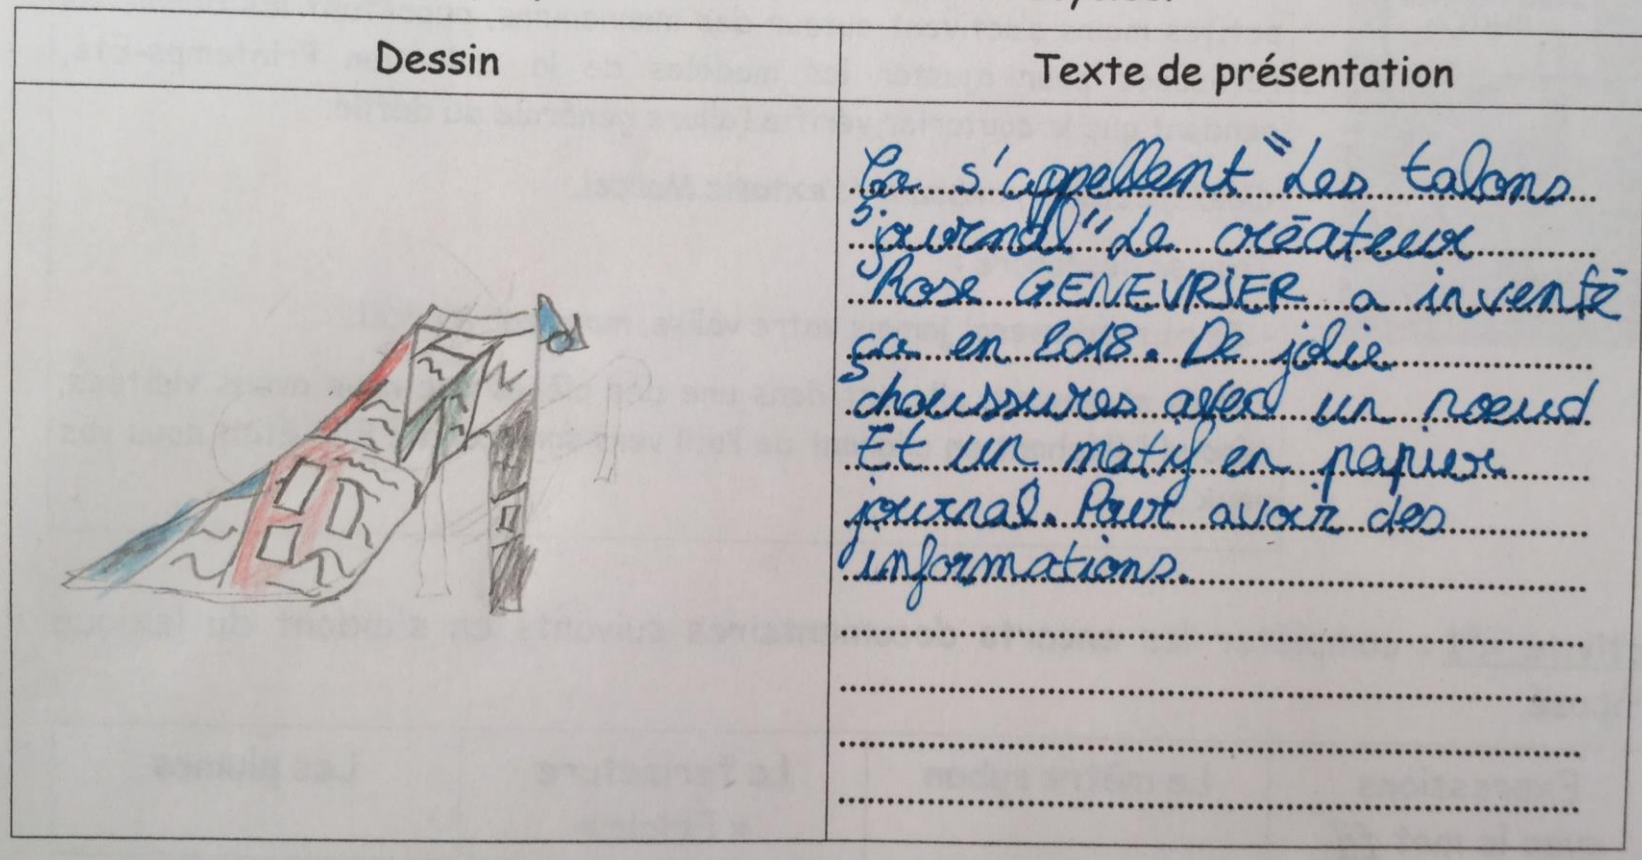 Dessin
Texte de présentation
Ça s'appellent "Les talons
journal" Le créateur
Rose GENEVRIER a inventé
ça en 2018. De jolie
chaussures avec un noeud.
Et un matif en papier
journal. Pour avoir des
informations.